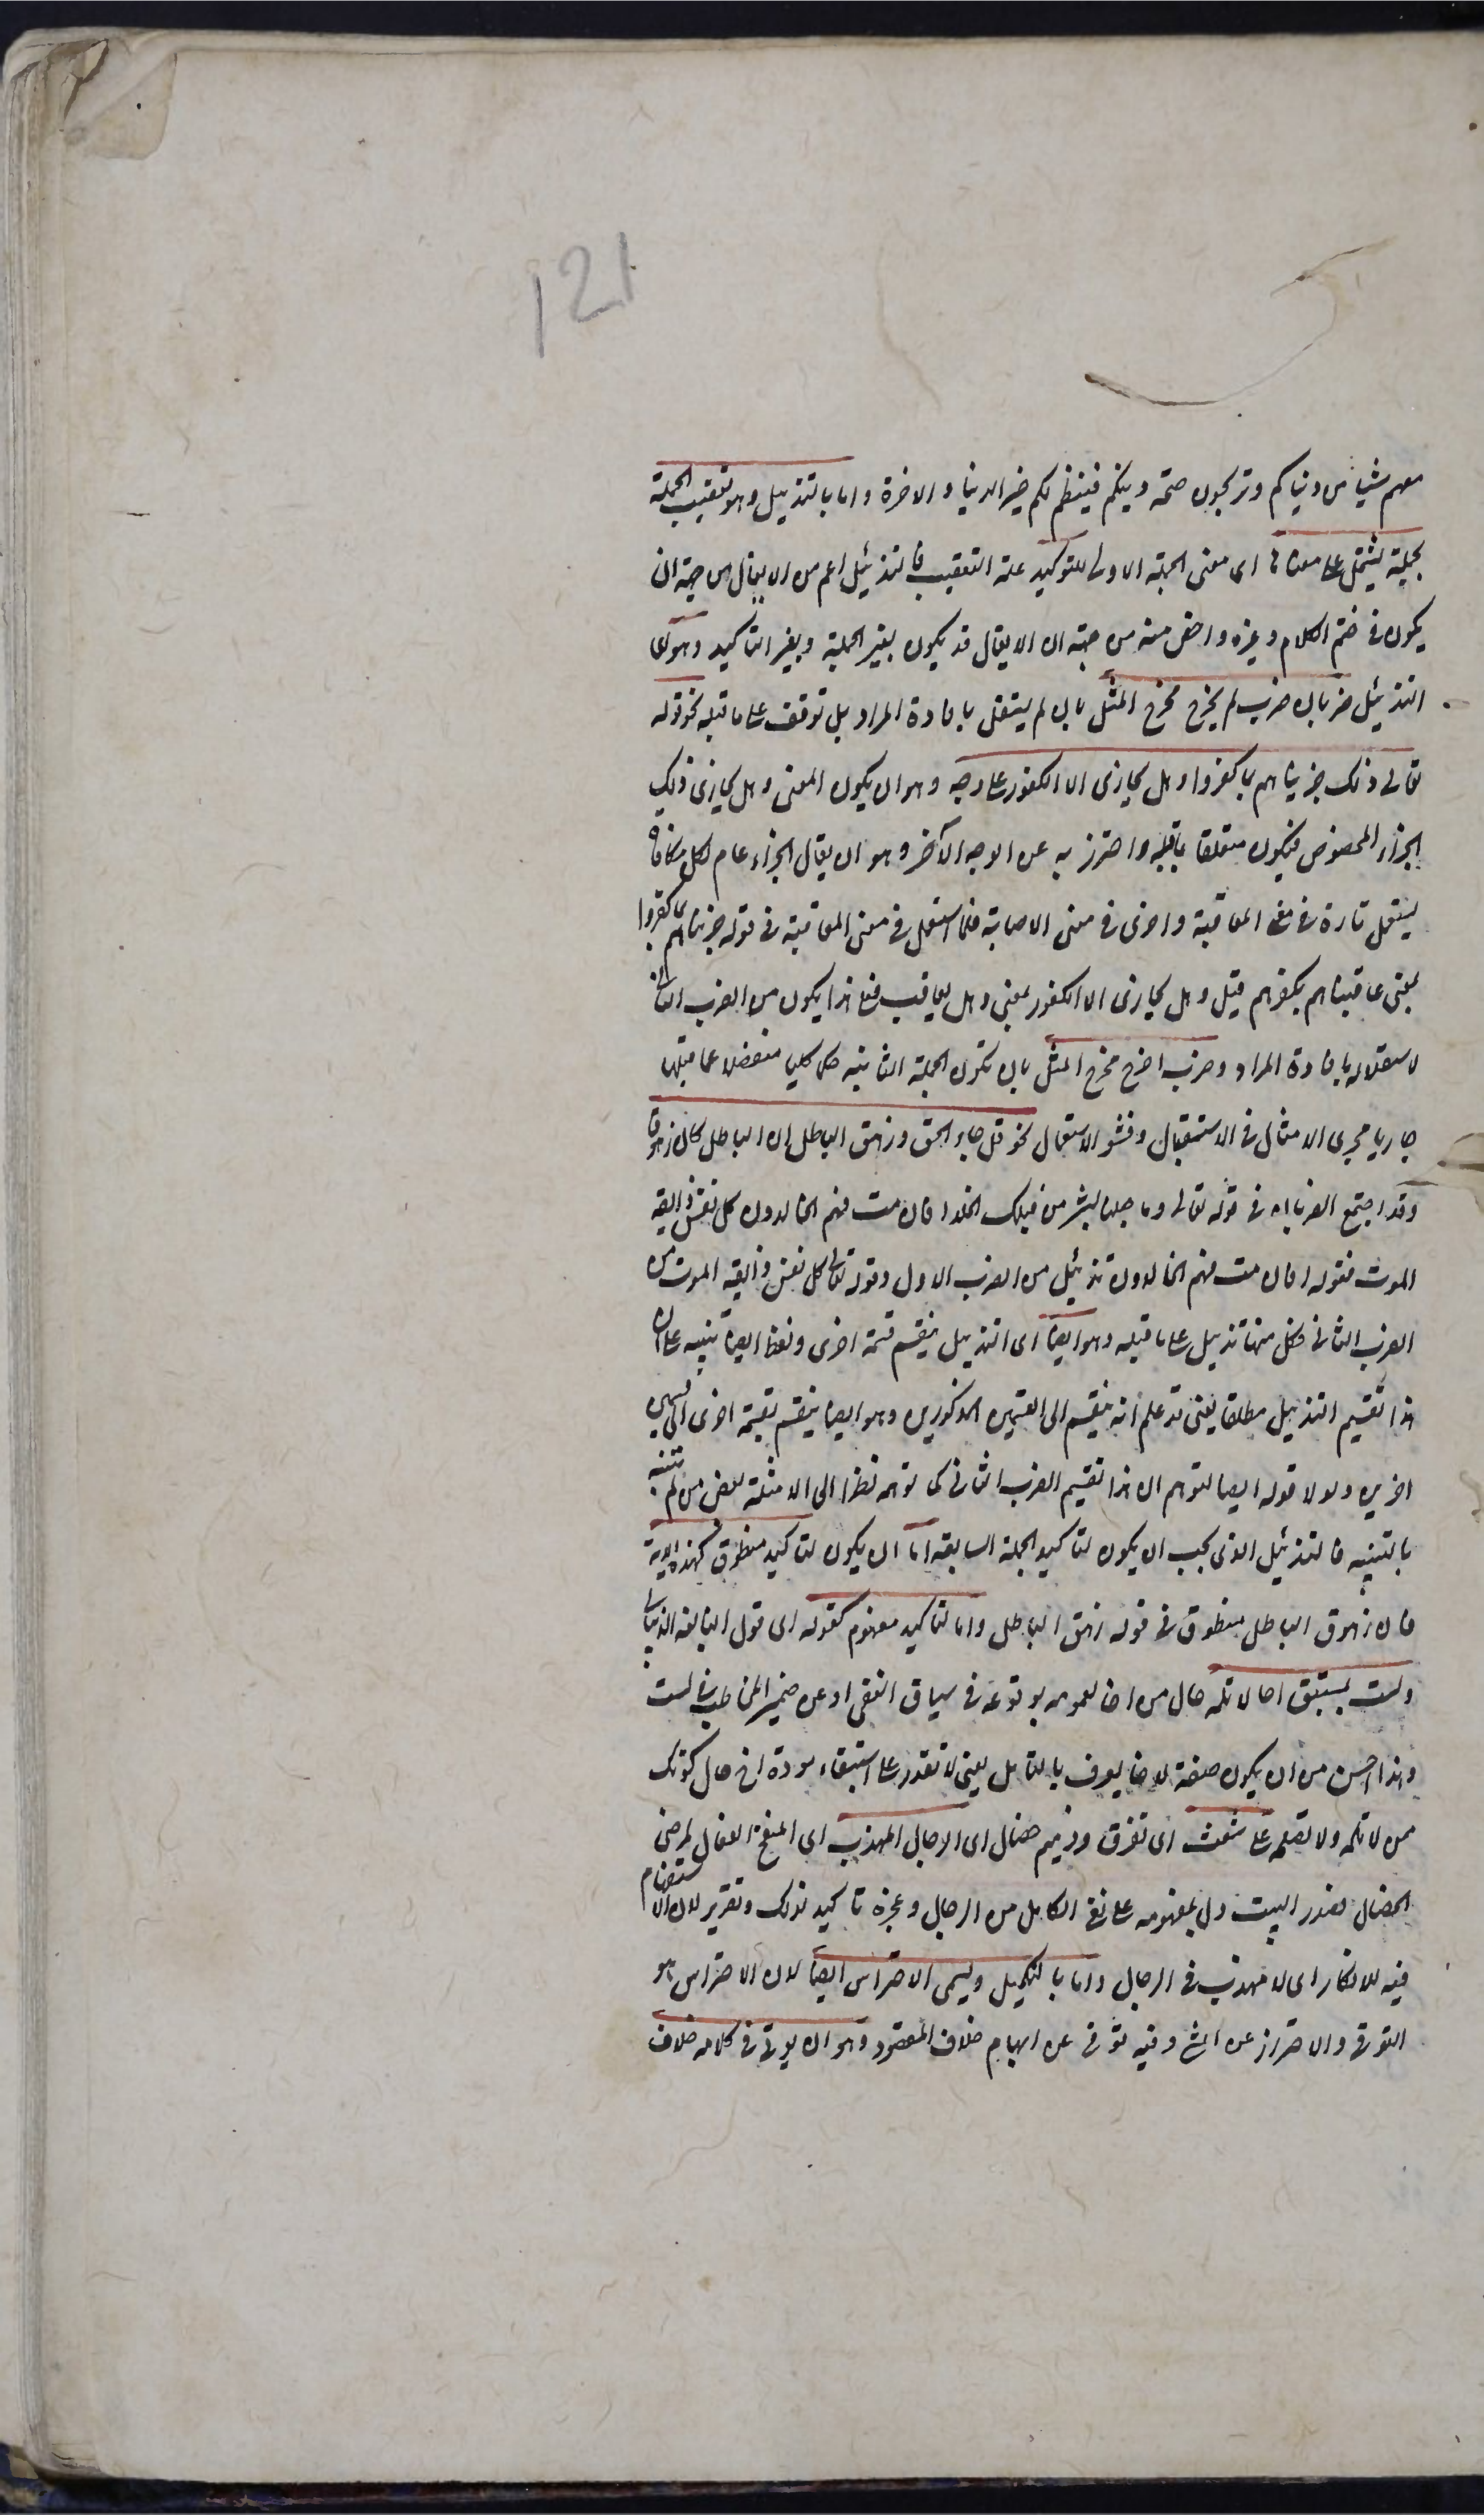 121
معهم شيئا من دنياكم وتربحون صحة دينكم فينتظم لكم خير الدنيا والاخرة واما بالتذييل وهو تعقيب الجملة
بجملة يشتمل على معناها اى معنى الجملة الاولى للتوكيد علة التعقيب فالتذييل اعم من الايغال من جهة ان
يكون فى ختم الكلام وغيره واخص منه من جهة ان الايغال قد يكون بغير الجملة وبغير التاكيد وهو اى
التذييل ضربان ضرب لم يخرج مخرج المثل بان لم يستقل بافادة المراد بل توقف على ما قبله نحو قوله
تعالى ذلك جزيناهم بما كفروا وهل يجازى الا الكفور على وجه وهو ان يكون المعنى وهل يجازى ذلك
الجزاء المخصوص فيكون متعلقا بما قبله واحترز به عن الوجه الآخر وهو ان يقال الجزاء عام لكل مكافاة
يستعمل تارة فى معنى المعاقبة واخرى فى معنى الاصابة فلما استعمل فى معنى المعاقبة فى قوله جزيناهم بما كفروا
بمعنى عاقبناهم بكفرهم قيل وهل يجازى الا الكفور بمعنى وهل يعاقب فعلى هذا يكون من الضرب الثانى
لاستقلاله بافادة المراد وضرب اخرج مخرج المثل بان تكون الجملة الثانية حكما كليا منفصلا عما قبلها
جاريا مجرى الامثال فى الاستقبال وفشو الاستعمال نحو قل جاء الحق وزهق الباطل ان الباطل كان زهوقا
وقد اجتمع الضربان فى قوله تعالى وما جعلنا لبشر من قبلك الخلد افان مت فهم الخالدون كل نفس ذايقة
الموت فقوله افان مت فهم الخالدون تذييل من الضرب الاول وقوله تعالى كل نفس ذايقة الموت من
الضرب الثانى فكل منهما تذييل على ما قبله وهو ايضا اى التذييل ينقسم قسمة اخرى ولفظ ايضا تنبيه على ان
هذا تقسيم التذييل مطلقا يعنى قد علم انه ينقسم الى القسمين المذكورين وهو ايضا ينقسم بقسمة اخرى الى قسمين
اخرين ولولا قوله ايضا لتوهم ان هذا تقسيم الضرب الثانى كما توهمه نظرا الى الامثلة بعض من لم يتنبه
بالتنبيه فالتذييل الذى يجب ان يكون لتاكيد الجملة السابقة اما ان يكون لتاكيد منطوق كهذه الاية
فان زهوق الباطل منطوق فى قوله زهق الباطل واما لتاكيد مفهوم كقوله اى قول النابغة الذبيانى
ولست بمستبق اخا لا تلمه حال من اخا لعمومه بوقوعه فى سياق النفى او عن ضمير المخاطب فى لست
وهذا احسن من ان يكون صفة لاخا يعرف بالتامل يعنى لا تقدر على استبقاء مودة اخ حال كونك
ممن لا تلمه ولا تصلحه على شعث اى تفرق وذميم خصال اى الرجال المهذب اى المنقح الفعال المرضى
الخصال فصدر البيت دل بمفهومه على نفى الكامل من الرجال وعجزه تاكيد لذلك وتقرير لان الاستفهام
فيه للانكار اى لا مهذب فى الرجال واما بالتكميل ويسمى الاحتراس ايضا لان الاحتراس هو
التوقى والاحتراز عن الشى وفيه توقى عن ايهام خلاف المقصود وهو ان يوتى فى كلامه خلاف